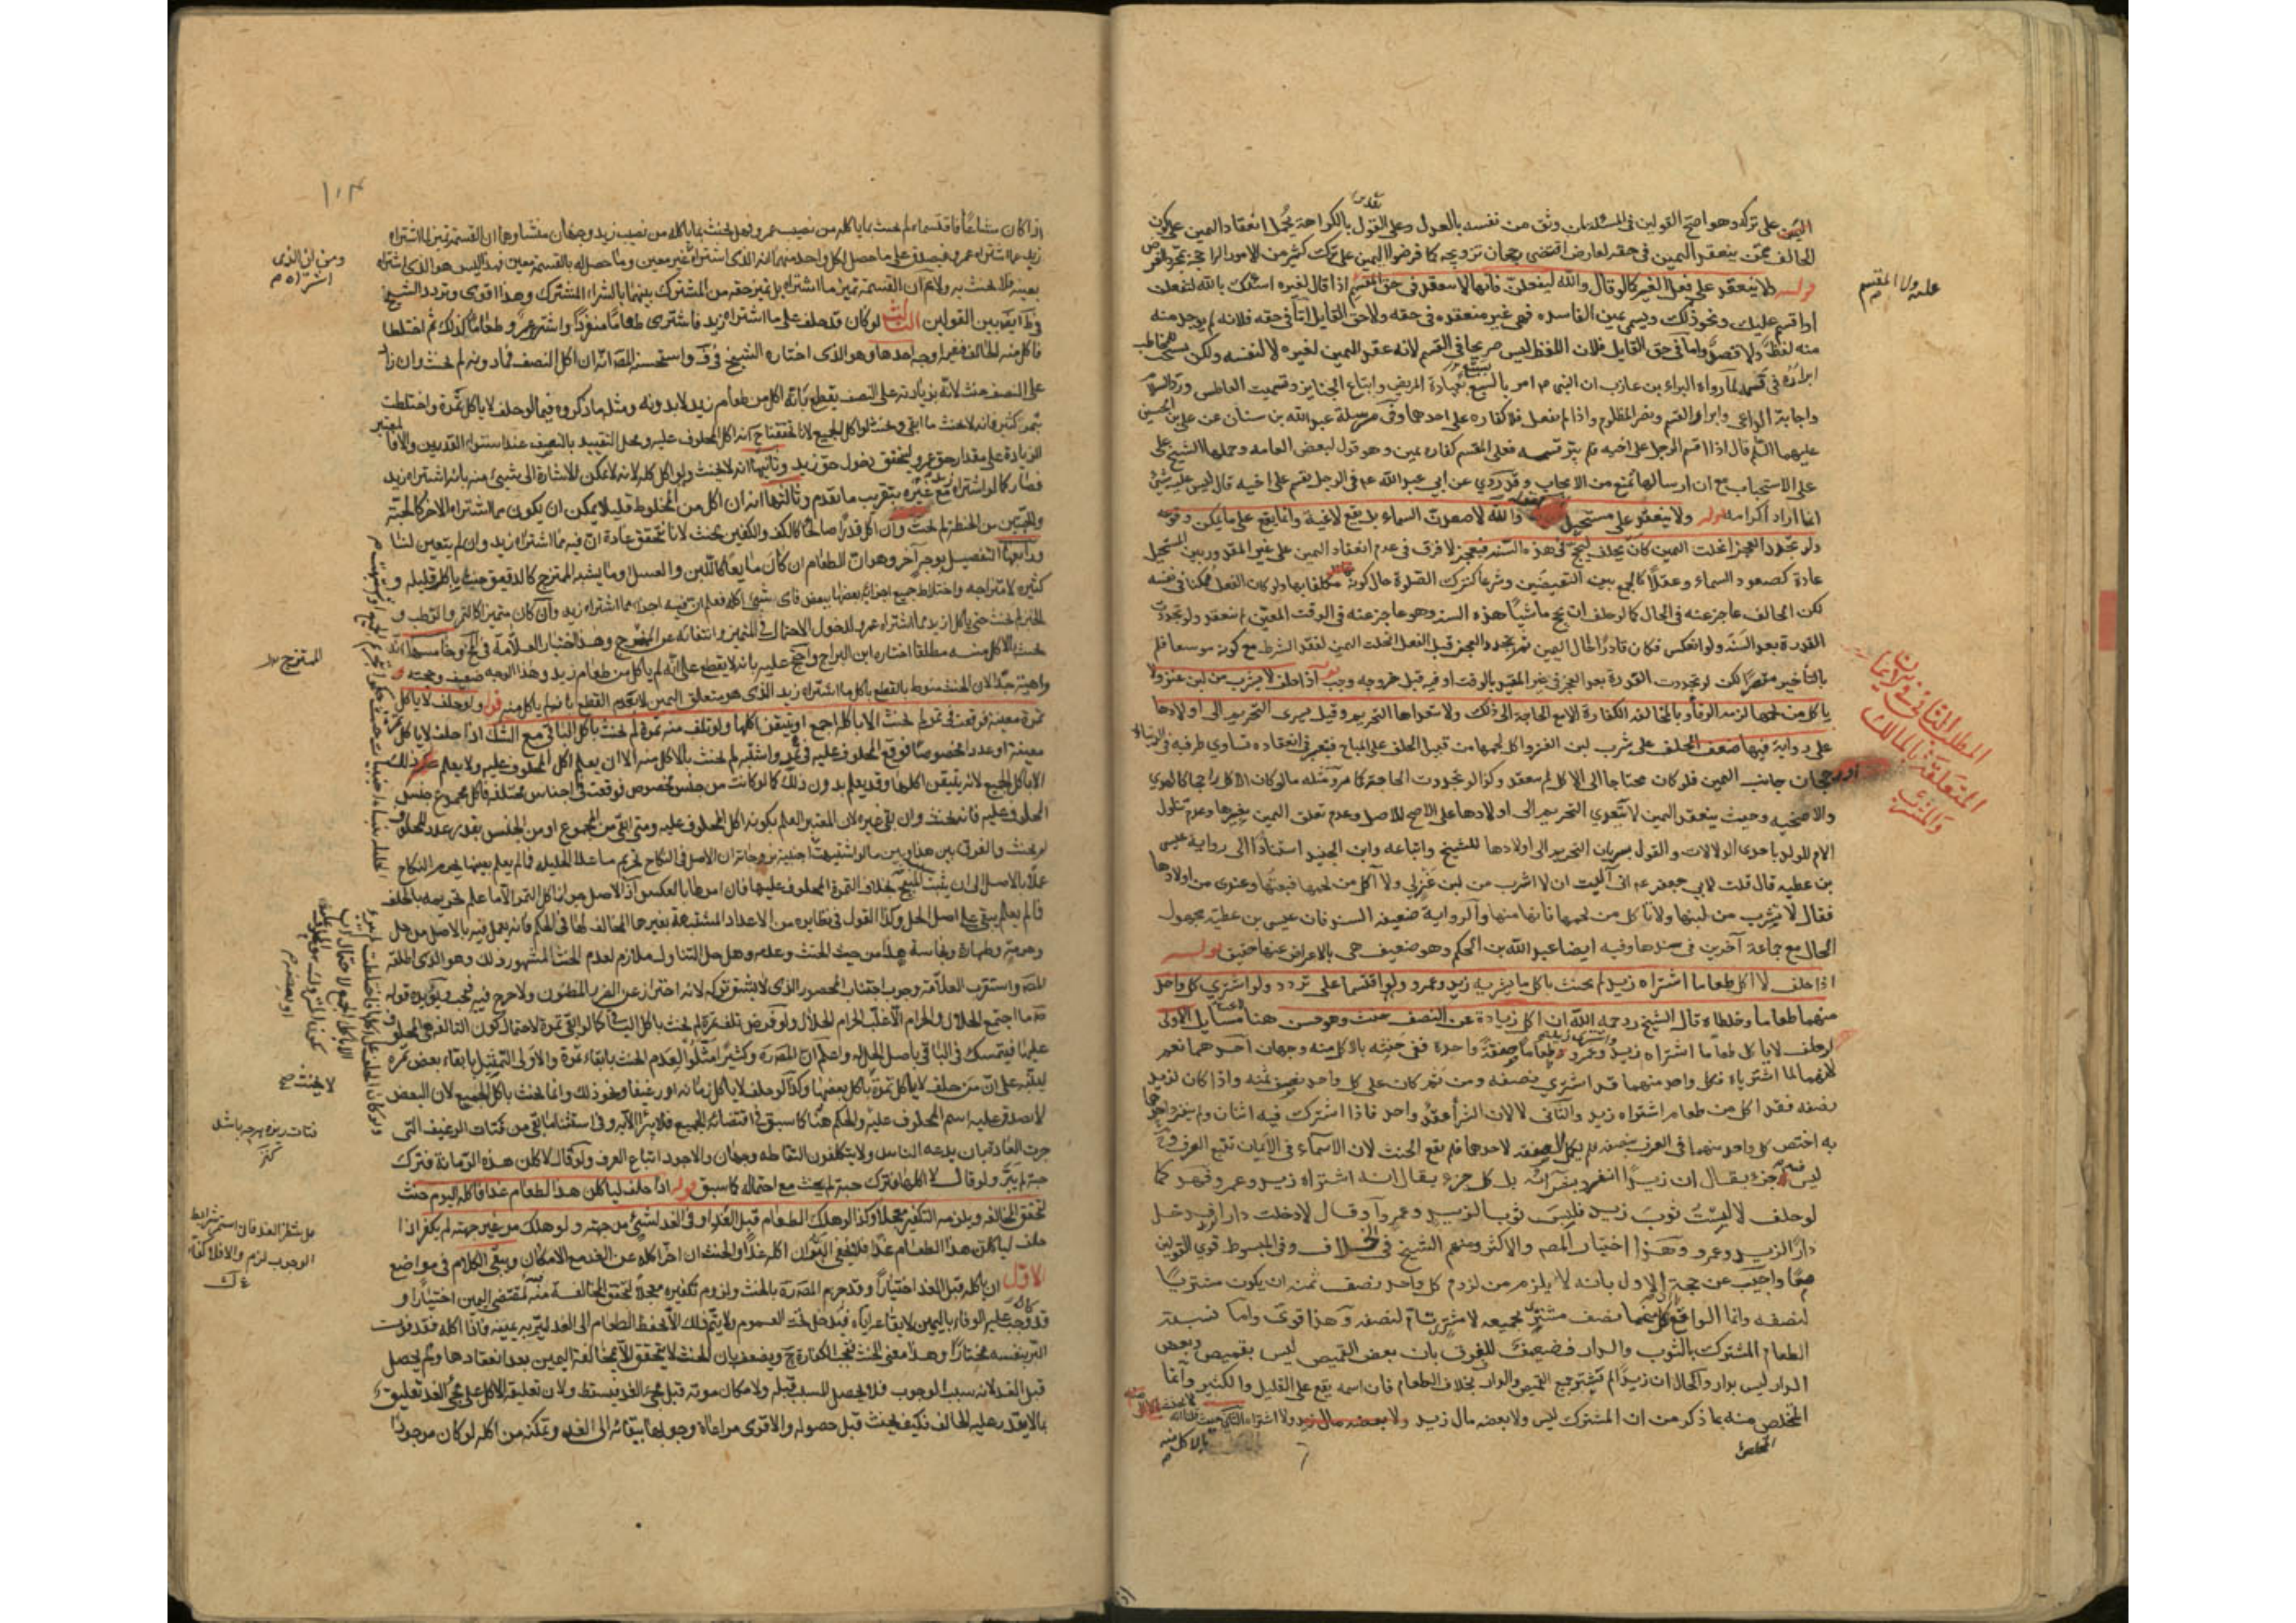 اليمين على تركه وهو اصح القولين في المسئلة لمن وثق من نفسه بالعدل وعلى القول بالكراهة يحمل انعقاد اليمين على كون
الحالف ممن ينعقد اليمين في حقه لعارض اقتضى رجحان تزويجه كما فرضوا اليمين على ترك كثير من الامور الراجحة
قوله ولا ينعقد على فعل الغير كما لو قال والله ليفعلن فانها لا تنعقد في حق المقسم اذا قال لغيره اسئلك بالله لتفعلن
او اقسم عليك ونحو ذلك ويسمى يمين المناشدة فهي غير منعقدة في حقه ولا حق القايل اما في حقه فلانه لم يوجد منه
لفظ ولا قصد واما في حق القايل فلان اللفظ ليس صريحا في القسم لانه عقد اليمين لغيره لا لنفسه ولكن يستحب للمخاطب
ابراره في قسمه لما رواه البراء بن عازب ان النبي امر بالسبع بعيادة المريض واتباع الجنايز وتسميت العاطس ورد السلام
واجابة الداعي وابرار القسم ونصر المظلوم واذا لم يفعل فلا كفاره على احدهما وفي مرسلة عبد الله بن سنان عن علي بن الحسين
عليهما السلم قال اذا اقسم الرجل على اخيه فلم يبر قسمه فعلى المقسم كفاره يمين وهو قول لبعض العامه وحملها الشيخ على
على الاستحباب مع ان ارسالها يمنع من الايجاب وقد روي عن ابي عبد الله في الرجل يقسم على اخيه قال ليس عليه شيء
انما اراد اكرامه قوله ولا ينعقد على مستحيل والله لاصعدن السماء بل يقع لاغية وانما يقع على ما يمكن وقوعه
ولو تجدد العجز انحلت اليمين كان يحلف ليحج في هذه السنه فيعجز لا فرق في عدم انعقاد اليمين على غير المقدور بين المستحيل
عادة كصعود السماء وعقلا كالجمع بين النقيضين وشرعا كترك الصلوة حال كونه مكلفا بها ولو كان الفعل ممكنا في نفسه
لكن الحالف عاجز عنه في الحال كما لو حلف ان يحج ماشيا هذه السنه وهو عاجز عنه في الوقت المعين لم تنعقد ولو تجددت
القدرة بعد السنة ولو انعكس فكان قادرا حال اليمين ثم تجدد العجز قبل الفعل انحلت اليمين لفقد الشرط مع كونه موسعا فلم
بالتاخير مقصرا لكن لو تجددت القدرة بعد العجز في غير المقيد بالوقت او فيه قبل خروجه وجب قوله اذا حلف لا يشرب من لبن عنز ولا
ياكل من لحمها لزمه الوفاء وبالمخالفه الكفارة الا مع الحاجة الى ذلك ولا يتعداها التحريم وقيل يسري التحريم الى اولادها
على رواية فيها ضعف الحلف على شرب لبن العنز واكل لحمها من قبيل الحلف على المباح فيعتبر في انعقاده تساوي طرفيه في الدنيا
او رجحان جانب اليمين فلو كان محتاجا الى الاكل لم ينعقد وكذا لو تجددت الحاجة كما مر ومثله ما لو كان الاكل راجحا كالهدي
والاضحيه وحيث ينعقد اليمين لا يتعدى التحريم الى اولادها على الاصح للاصل وعدم تعلق اليمين بغيرها وعدم تناول
الام للولد باحدى الدلالات والقول بسريان التحريم الى اولادها للشيخ واتباعه وابن الجنيد استنادا الى رواية عيسى
بن عطيه قال قلت لابي جعفر اني آليت ان لا اشرب من لبن عنزلي ولا آكل من لحمها فبعتها وعندي من اولادها
فقال لا تشرب من لبنها ولا تاكل من لحمها فانها منها والرواية ضعيفه السند فان عيسى بن عطيه مجهول
الحال مع جماعة آخرين في سندها وفيه ايضا عبد الله بن الحكم وهو ضعيف فهي بالاعراض عنها حقيق قوله
اذا حلف لا اكل طعاما اشتراه زيد لم يحنث باكل ما يشتريه زيد وعمرو ولو اقتسما على تردد ولو اشترى كل واحد
منهما طعاما وخلطاه قال الشيخ رحمه الله ان اكل زيادة عن النصف حنث وهو حسن هنا مسايل الاولى
لو حلف لا ياكل طعاما اشتراه زيد وعمرو طعاما صفقة واحدة ففي حنثه بالاكل منه وجهان احدهما نعم
لانهما لما اشترياه فكل واحد منهما قد اشترى نصفه ومن ثم كان على كل واحد نصف ثمنه واذا كان لزيد
نصفه فقد اكل من طعام اشتراه زيد والثاني لا لان الشراء عقد واحد فاذا اشترك فيه اثنان ولم ينفرد احدهما
به اختص كل واحد منهما في العرف بنصفه فلم يكمل الصفقه لاحدهما فلم يقع الحنث لان الاسماء في الايمان تتبع العرف و
ليس جزء يقال ان زيدا انفرد بشرائه بل كل جزء يقال انه اشتراه زيد وعمرو فهو كما
لو حلف لا لبست ثوب زيد فلبس ثوبا لزيد وعمرو او قال لا دخلت دار زيد فدخل
دارا لزيد وعمرو وهذا اختيار المصه والاكثر ومنهم الشيخ في الخلاف وفي المبسوط قوى القولين
معا واجيب عن حجة الاول بانه لا يلزم من لزوم كل واحد نصف ثمنه ان يكون مشتريا
لنصفه وانما الواقع كل منهما نصف مشتر لجميعه لا مشتر تام لنصفه وهذا قوي واما نسبة
الطعام المشترك بالثوب والدار فضعيف للفرق بان بعض القميص ليس بقميص وبعض
الدار ليس بدار والحال ان زيدا لم يشتر جميع القميص والدار بخلاف الطعام فان اسمه يقع على القليل والكثير وانما
التخلص منه بما ذكر من ان المشترك ليس ولا بعضه مال زيد
بالاكل منه
عليه ولا المقسم
المطلب الثاني في الايمان
المتعلقة بالماكل
والمشرب
اذا كان مشاعا فاقتسماه لم يحنث بما ياكله من نصيب عمرو وهل يحنث بما ياكله من نصيب زيد وجهان منشاوهما ان القسمة تميز لما اشتراه
زيد عما اشتراه عمرو فيصدق على ما حصل لكل واحد منهما انه الذي اشتراه غير معين وما حصل له بالقسمة معين فهذا ليس هو الذي اشتراه
بعينه فلا يحنث به ولا نم ان القسمة تميز ما اشتراه بل تميز حقه من المشترك بينهما بالشراء المشترك وهذا اقوى وتردد الشيخ
في ط بين القولين الثالثة لو كان قد حلف على ما اشتراه زيد فاشترى طعاما منفردا واشترى عمرو طعاما كذلك ثم اختلطا
فاكل منه الحالف ففيه اوجه احدها وهو الذي اختاره الشيخ في ف واستحسنه المصه انه ان اكل النصف فما دونه لم يحنث وان زاد
على النصف حنث لانه بزيادته على النصف يقطع بانه اكل من طعام زيد لا بدونه ومثله ما ذكروه فيما لو حلف لا ياكل تمرة واختلطت
بتمر كثير فانه لا يحنث ما ابقى وحنث لو اكل الجميع لانا تحققنا ح انه اكل المحلوف عليه ومحل التقييد بالنصف عند استواء القدرين والا فالمعتبر
الزيادة على مقدار حق عمرو ليتحقق دخول حق زيد وثانيها انه لا يحنث ولو اكل كله لانه لا يمكن الاشارة الى شيء منه بانه اشتراه زيد
فصار كما لو اشتراه مع غيره بتقريب ما تقدم وثالثها انه ان اكل من المخلوط قليلا يمكن ان يكون مما اشتراه الاخر كالحبة
والحبتين من الحنطة لم يحنث وان اكل قدرا صالحا كالكف والكفين يحنث لانا نتحقق عادة ان فيه مما اشتراه زيد وان لم يتعين لنا
ورابعها التفصيل بوجه آخر وهو ان الطعام ان كان مايعا كاللبن والعسل وما يشبه الممتزج كالدقيق حنث باكل قليله و
كثيره لامتزاجه واختلاط جميع اجزائه بعضها ببعض فاي شيء اكله فعلم ان فيه اجزاء مما اشتراه زيد وان كان متميزا كالتمر والرطب و
الخبز لم يحنث حتى ياكل ازيد مما اشتراه عمرو لدخول الاحتمال في المتميز وانتفائه عن الممتزج وهذا اختيار العلامة في لف وخامسها انه
يحنث بالاكل منه مطلقا اختاره ابن البراج واحتج عليه بانه لا يقطع على انه لم ياكل من طعام زيد وهذا الوجه ضعيف وحجته
واهية جدا لان الحنث منوط بالقطع باكل ما اشتراه زيد الذي هو متعلق اليمين لا بعدم القطع بانه لم ياكل منه قوله ولو حلف لا ياكل
تمرة معينة فوقعت في تمر لم يحنث الا باكله اجمع او يتيقن اكلها ولو تلف منه تمرة لم يحنث باكل الباقي مع الشك اذا حلف لا ياكل تمرة
معينة او عددا مخصوصا فوقع المحلوف عليه في تمر واشتبه لم يحنث بالاكل منه الا ان يعلم اكل المحلوف عليه ولا يعلم ذلك
الا باكل الجميع لانه يتيقن اكلها وقد يعلم بدون ذلك كما لو كانت من جنس مخصوص فوقعت في اجناس مختلفه فاكل مجموع جنس
المحلوف عليه فانه يحنث وان بقي غيره لان المعتبر العلم بكونه اكل المحلوف عليه ومتى ابقى من المجموع او من الجنس بقدر عدد المحلوف
لم يحنث والفرق بين هذا وبين ما لو اشتبهت اجنبية بزوجاته ان الاصل في النكاح تحريم ما عدا الحليله فما لم يعلم بعينها يحرم النكاح
عملا بالاصل الى ان يثبت المبيح بخلاف التمرة المحلوف عليها فان امرها بالعكس اذ الاصل جواز اكل التمر الا ما علم تحريمه بالحلف
فما لم يعلم يبقى على اصل الحل وكذا القول في نظايره من الاعداد المشتبهة بغيرها المخالف لها في الحكم فانه يعمل فيه بالاصل من حل
وحرمة وطهارة ونجاسة هذا من حيث الحنث وعدمه وهل حل التناول ملازم لعدم الحنث المشهور ذلك وهو الذي اطلقه
المصه واستقرب العلامة وجوب اجتناب المحصور الذي لا يشق تركه لانه احتراز عن الضرر المظنون ولا حرج فيه فيجب ويؤيده قوله
ما اجتمع الحلال والحرام الا غلب الحرام الحلال ولو فرض تلف تمرة لم يحنث باكل الباقي كما لو ابقى تمرة لاحتمال كون التالفه هي المحلوف
عليها فيتمسك في الباقي باصل الحل واعلم ان المصه ره وكثيرا مثلوا لعدم الحنث بابقاء تمرة والاولى التمثيل بابقاء بعض تمرة
لينبه على ان من حلف لا ياكل تمرة فاكل بعضها وكذا لو حلف لا ياكل رمانه او رغيفا ونحو ذلك وانما يحنث باكل الجميع لان البعض
لا يصدق عليه اسم المحلوف عليه والحكم هنا كما سبق في اقتضائه الجميع فلا يبرا الا به وفي استثناء ما بقي من فتات الرغيف التي
جرت العادة بان يدعه الناس ولا يتكلفون التقاطه وجهان والاجود اتباع العرف ولو قال لاكلن هذه الرمانة فترك
حبة لم يبر ولو قال لا اكلها فترك حبة لم يحنث مع احتماله كما سبق قوله اذا حلف لياكلن هذا الطعام غدا فاكله اليوم حنث
لتحقق المخالفه ويلزمه التكفير معجلا وكذا لو هلك الطعام قبل الغد او في الغد بشيء من جهته ولو هلك من غير جهته لم يكفر اذا
حلف لياكلن هذا الطعام غدا فلا يخفى البر ان اكله غدا والحنث ان اخر اكله عن الغد مع الامكان ويبقى الكلام في مواضع
الاول ان ياكله قبل الغد اختيارا وقد جزم المصه ره بالحنث ولزوم تكفيره معجلا لتحقق المخالفة منه لمقتضى اليمين اختيارا و
قد وجب عليه الوفاء باليمين لايقاعه اياه فيدخل تحت العموم ولا يتم ذلك الا بحفظ الطعام الى الغد ليبر به يمينه فاذا اكله فقد فوت
البر بنفسه مختارا وهذا معنى الحنث فتجب الكفارة ح ويضعف بان الحنث لا يتحقق الا بمخالفة اليمين بعد انعقادها ولم يحصل
قبل الغد لانه سبب الوجوب فلا يحصل المسبب قبله ولامكان موته قبل مجيء الغد فيسقط ولان تعليقه الاكل على مجيء الغد تعليق
بما لا يقدر عليه الحالف فكيف يحنث قبل حصوله والاقوى مراعاة وجوبها ببقائه الى الغد وتمكنه من اكله لو كان موجودا
ومن ان الذي
اشتراه م
الممتزج
لا يحنث صح
فتات ريزه هر چه باشد
كنز